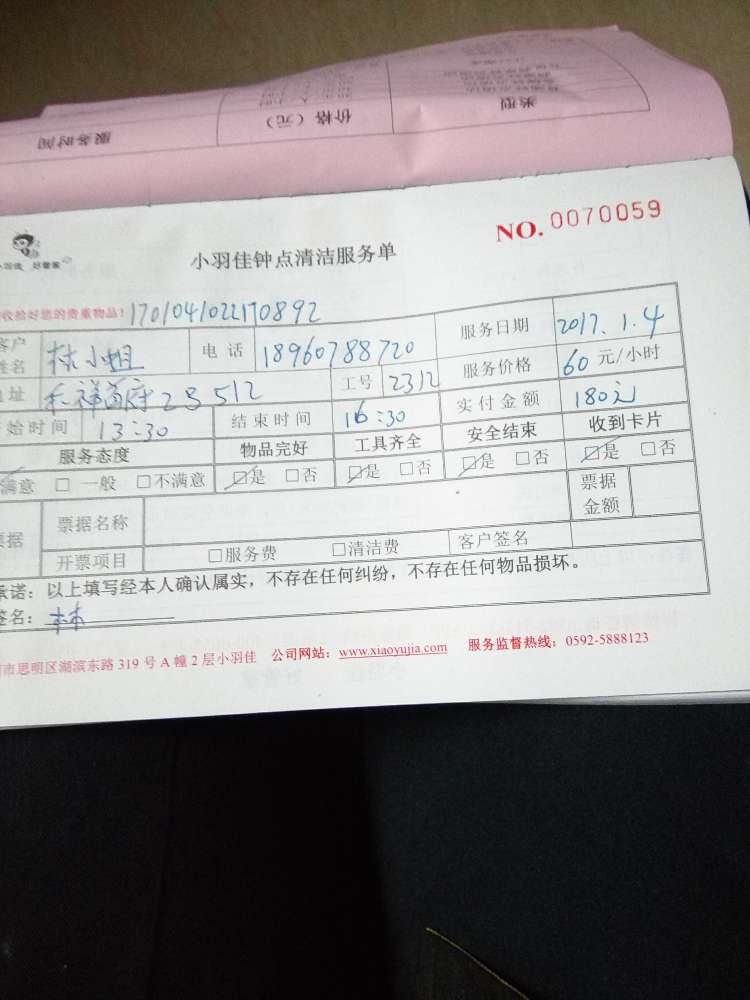 类型
价格（元）
服务时间
NO. 0070059
小羽佳 好管家
小羽佳钟点清洁服务单
收拾好您的贵重物品！1701041022170892
客户姓名 林小姐 电话 18960788720 服务日期 2017.1.4
址 禾祥首府23512 工号 2312 服务价格 60元/小时
始时间 13:30 结束时间 16:30 实付金额 180元
服务态度 物品完好 工具齐全 安全结束 收到卡片
满意 □一般 □不满意 ☑是 □否 ☑是 □否 ☑是 □否 ☑是 □否
据 票据名称 票据金额
开票项目 □服务费 □清洁费 客户签名
承诺：以上填写经本人确认属实，不存在任何纠纷，不存在任何物品损坏。
签名：林
市思明区湖滨东路 319 号 A 幢 2 层小羽佳 公司网站：www.xiaoyujia.com 服务监督热线：0592-5888123